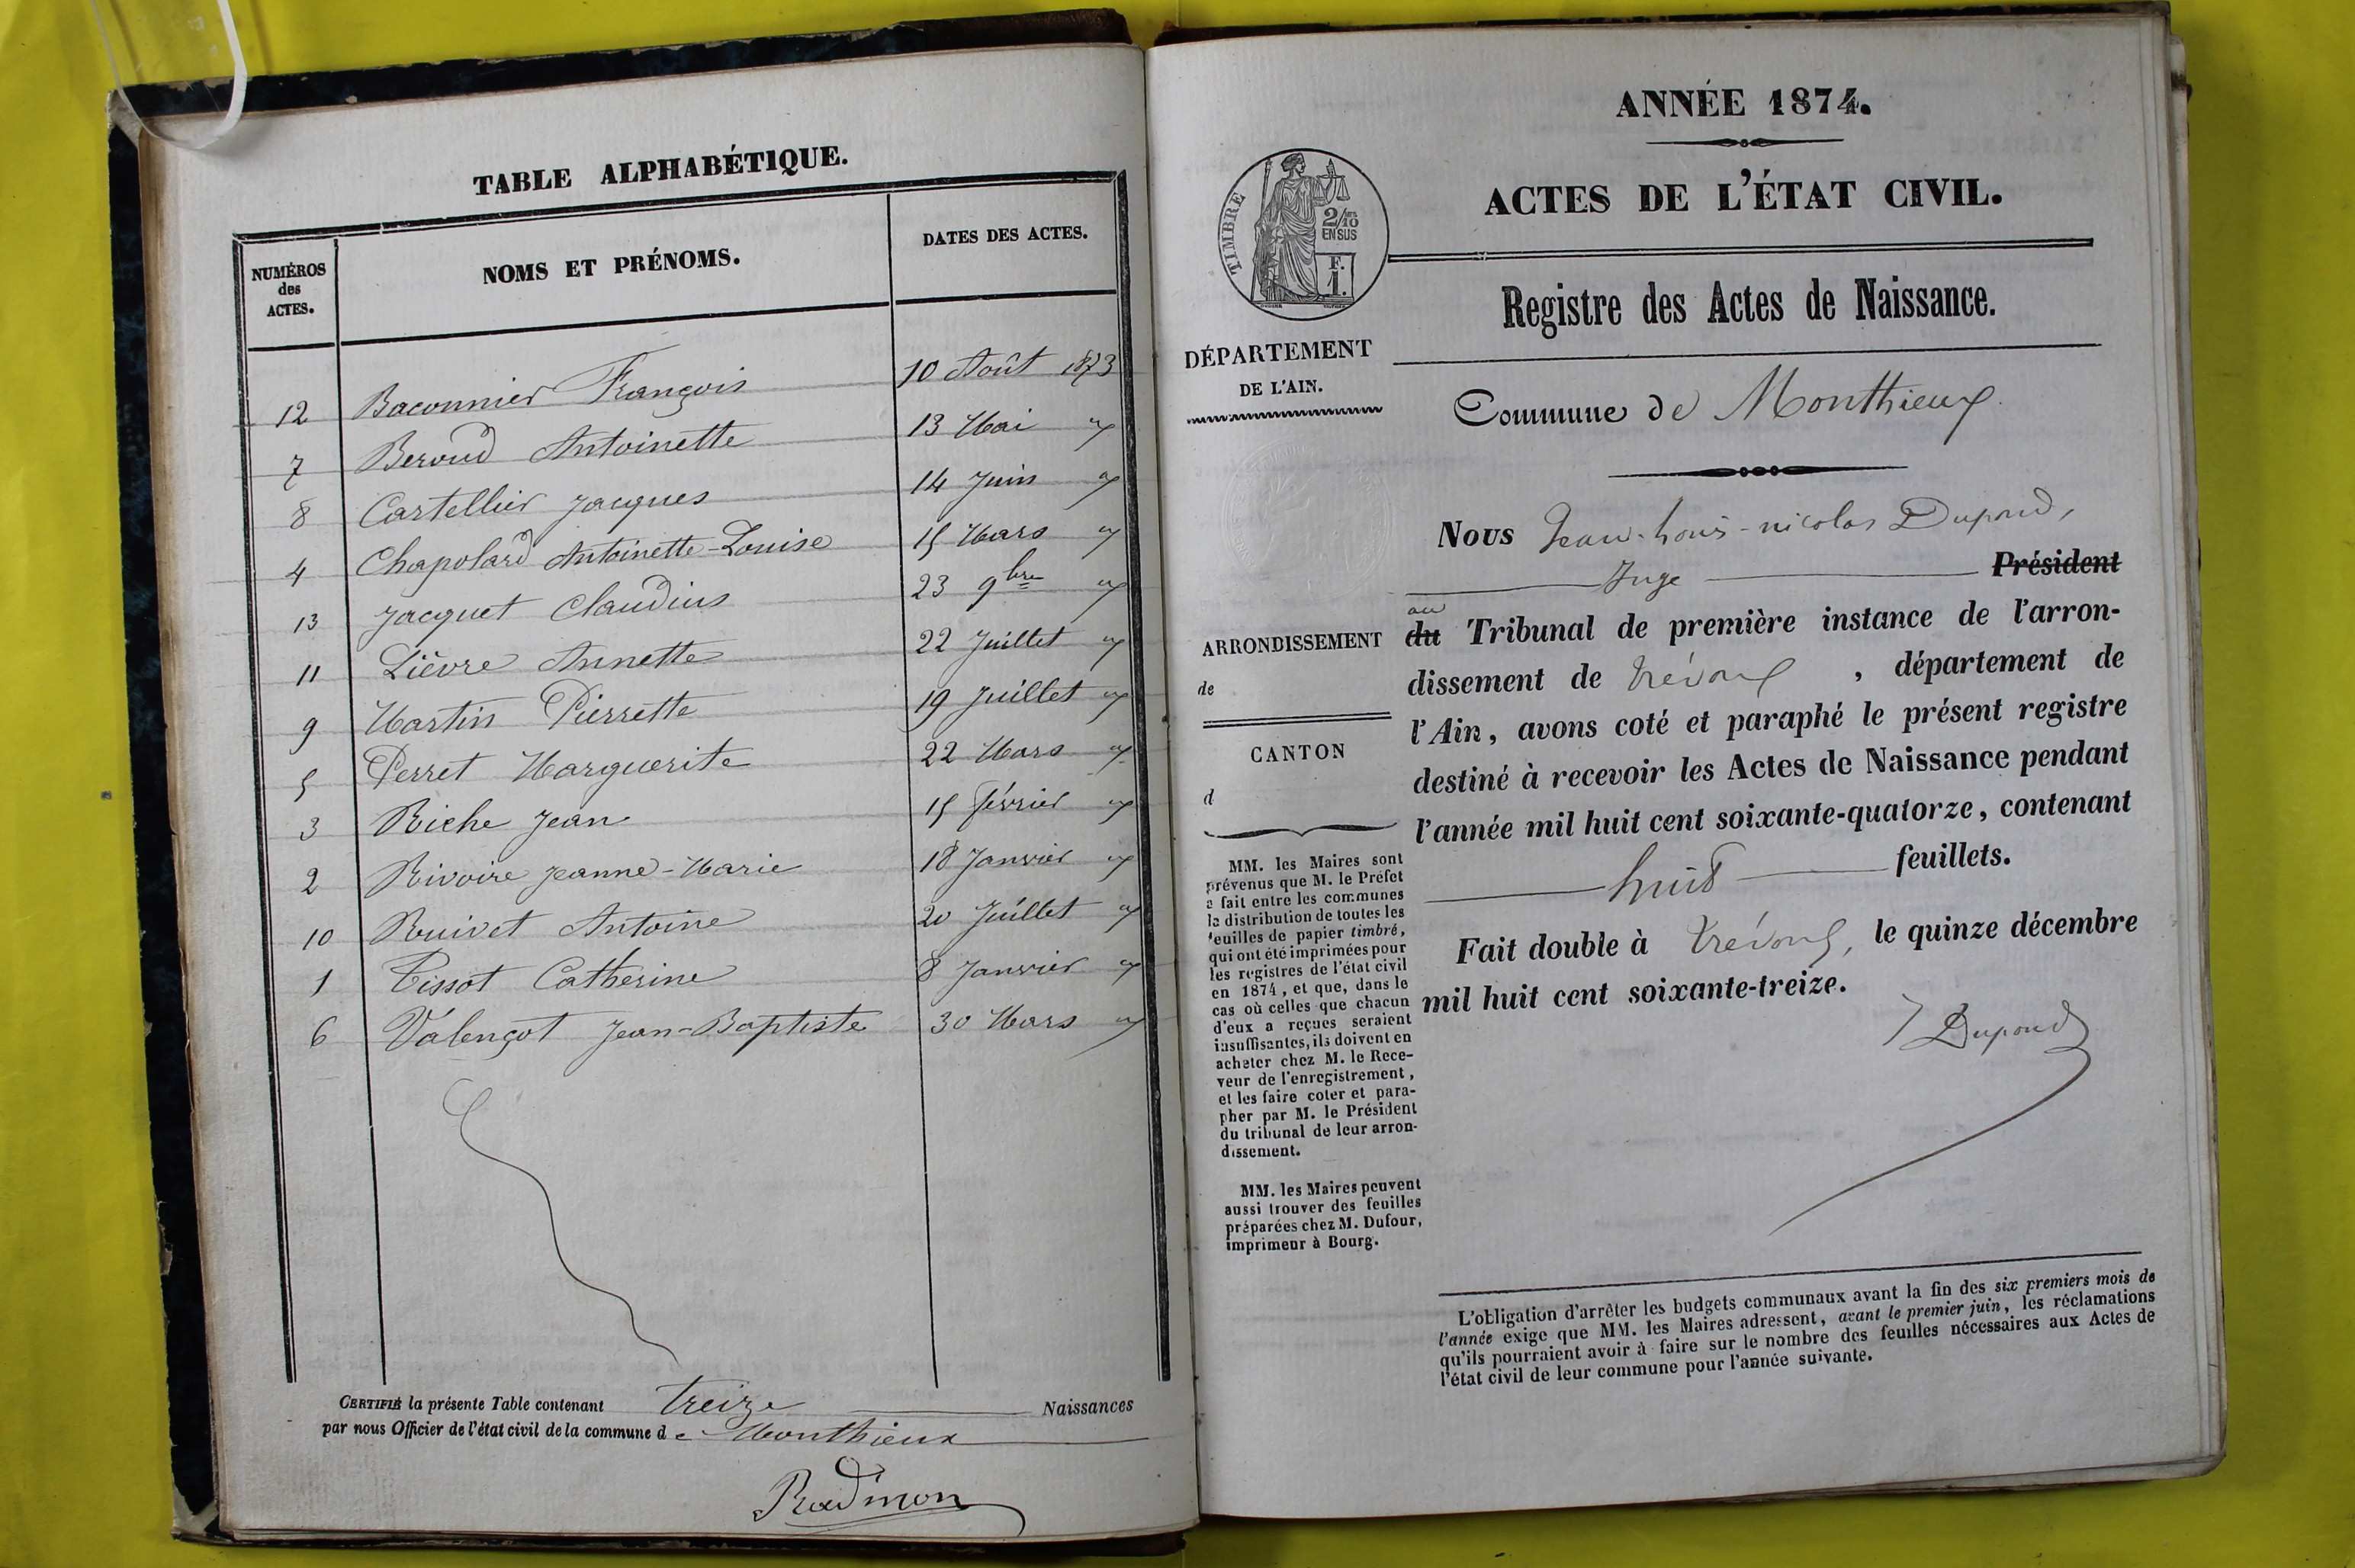 TABLE ALPHABÉTIQUE.
NUMÉROS
des
ACTES.
NOMS ET PRÉNOMS.
DATES DES ACTES.
12 Baconnier François 10 Août 1873
7 Beroud Antoinette 13 Mai
8 Cartellier Jacques 14 Juin
4 Chapolard Antoinette-Louise 15 Mars
13 Jacquet Claudius 23 9bre
11 Lièvre Annette 22 Juillet
9 Martin Pierrette 19 Juillet
5 Perret Marguerite 22 Mars
3 Riche Jean 15 février
2 Rivoire Jeanne-Marie 18 Janvier
10 Ruivet Antoine 20 Juillet
1 Tissot Catherine 8 Janvier
6 Valençot Jean-Baptiste 30 Mars
CERTIFIÉ la présente Table contenant treize Naissances
par nous Officier de l'état civil de la commune de Monthieux
Radmon
ANNÉE 1874.
ACTES DE L'ÉTAT CIVIL.
TIMBRE
2/10
EN SUS
F.
1.
Registre des Actes de Naissance.
DÉPARTEMENT
DE L'AIN.
Commune de Monthieux
ARRONDISSEMENT
de
CANTON
d
MM. les Maires sont
prévenus que M. le Préfet
a fait entre les communes
la distribution de toutes les
feuilles de papier timbré,
qui ont été imprimées pour
les registres de l'état civil
en 1874, et que, dans le
cas où celles que chacun
d'eux a reçues seraient
insuffisantes, ils doivent en
acheter chez M. le Rece-
veur de l'enregistrement,
et les faire coter et para-
pher par M. le Président
du tribunal de leur arron-
dissement.
MM. les Maires peuvent
aussi trouver des feuilles
préparées chez M. Dufour,
imprimeur à Bourg.
Nous Jean-Louis-nicolas Dupond,
Juge Président
au
du Tribunal de première instance de l'arron-
dissement de trévoux, département de
l'Ain, avons coté et paraphé le présent registre
destiné à recevoir les Actes de Naissance pendant
l'année mil huit cent soixante-quatorze, contenant
huit feuillets.
Fait double à trévoux, le quinze décembre
mil huit cent soixante-treize.
Dupond
L'obligation d'arrêter les budgets communaux avant la fin des six premiers mois de
l'année exige que MM. les Maires adressent, avant le premier juin, les réclamations
qu'ils pourraient avoir à faire sur le nombre des feuilles nécessaires aux Actes de
l'état civil de leur commune pour l'année suivante.